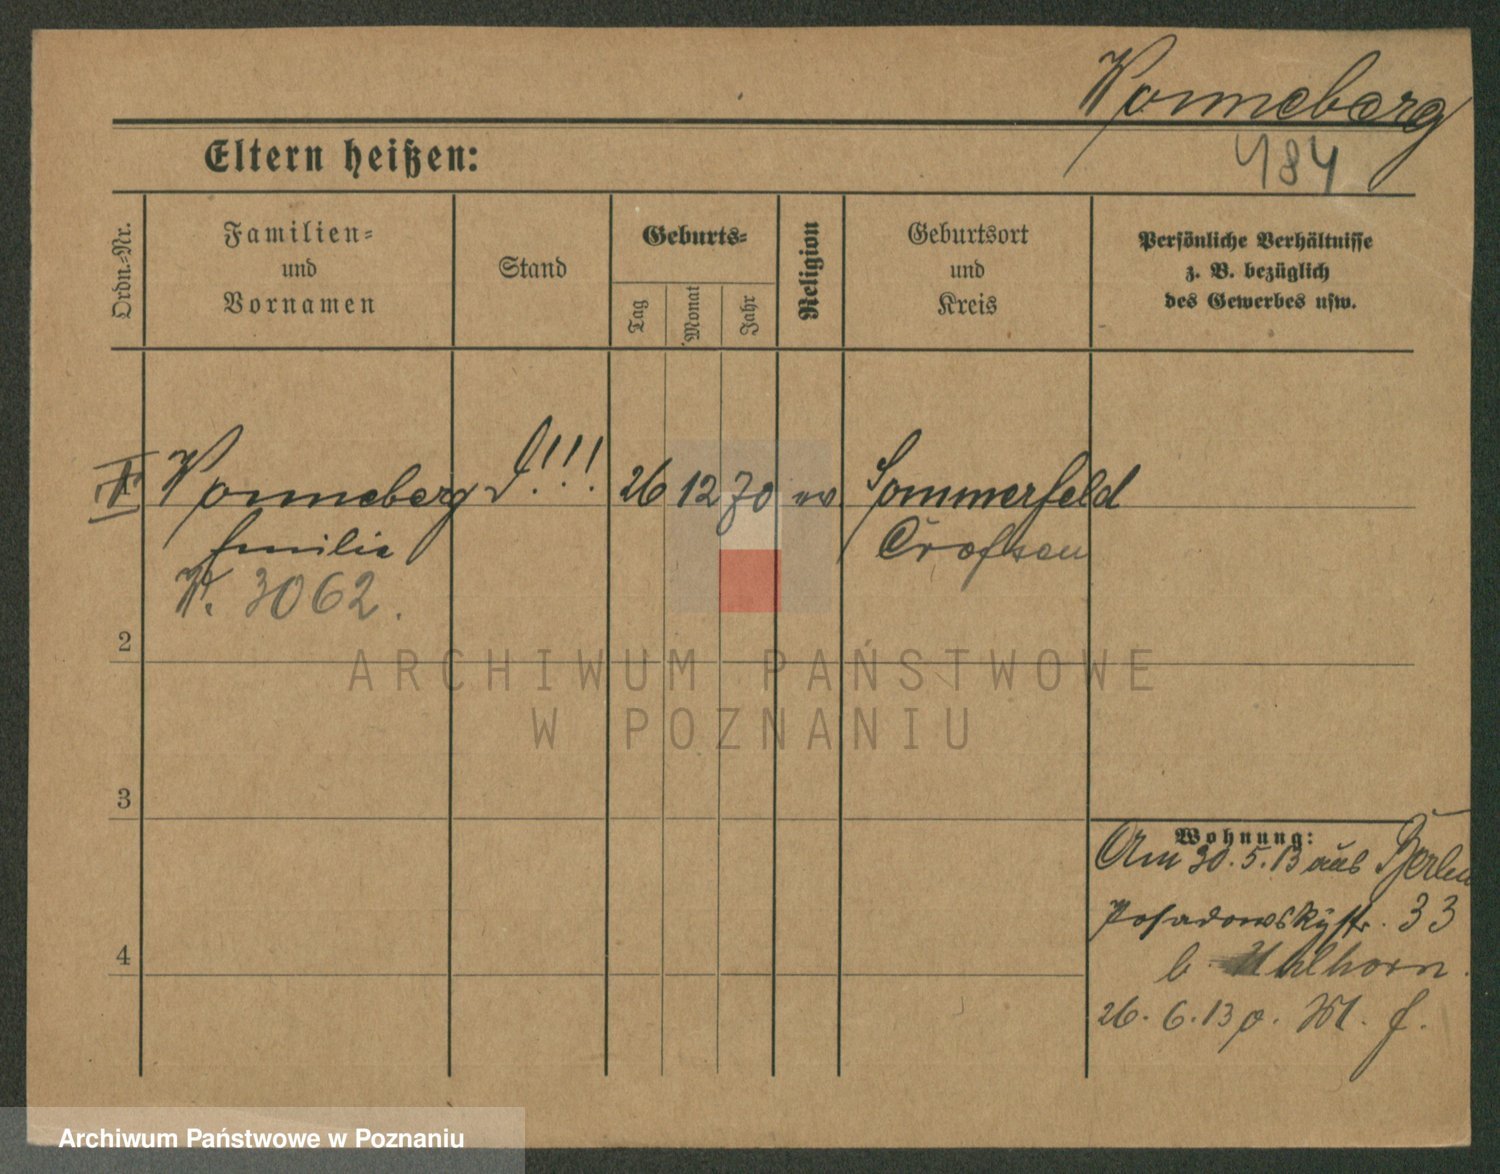 Wonneberg
484
Eltern heißen:
Ordn.-Nr.
Familien-
und
Vornamen
Stand
Geburts-
Tag
Monat
Jahr
Religion
Geburtsort
und
Kreis
Persönliche Verhältnisse
z. B. bezüglich
des Gewerbes usw.
1 Wonneberg !!! 26 12 70 ev Sommerfeld
Emilie Crossen
W. 3062.
2
3
4
Wohnung:
Am 30.5.13 aus Berlin
Posadowskystr. 33
b. Uhlhorn.
26.6.13
ARCHIWUM PAŃSTWOWE
W POZNANIU
Archiwum Państwowe w Poznaniu